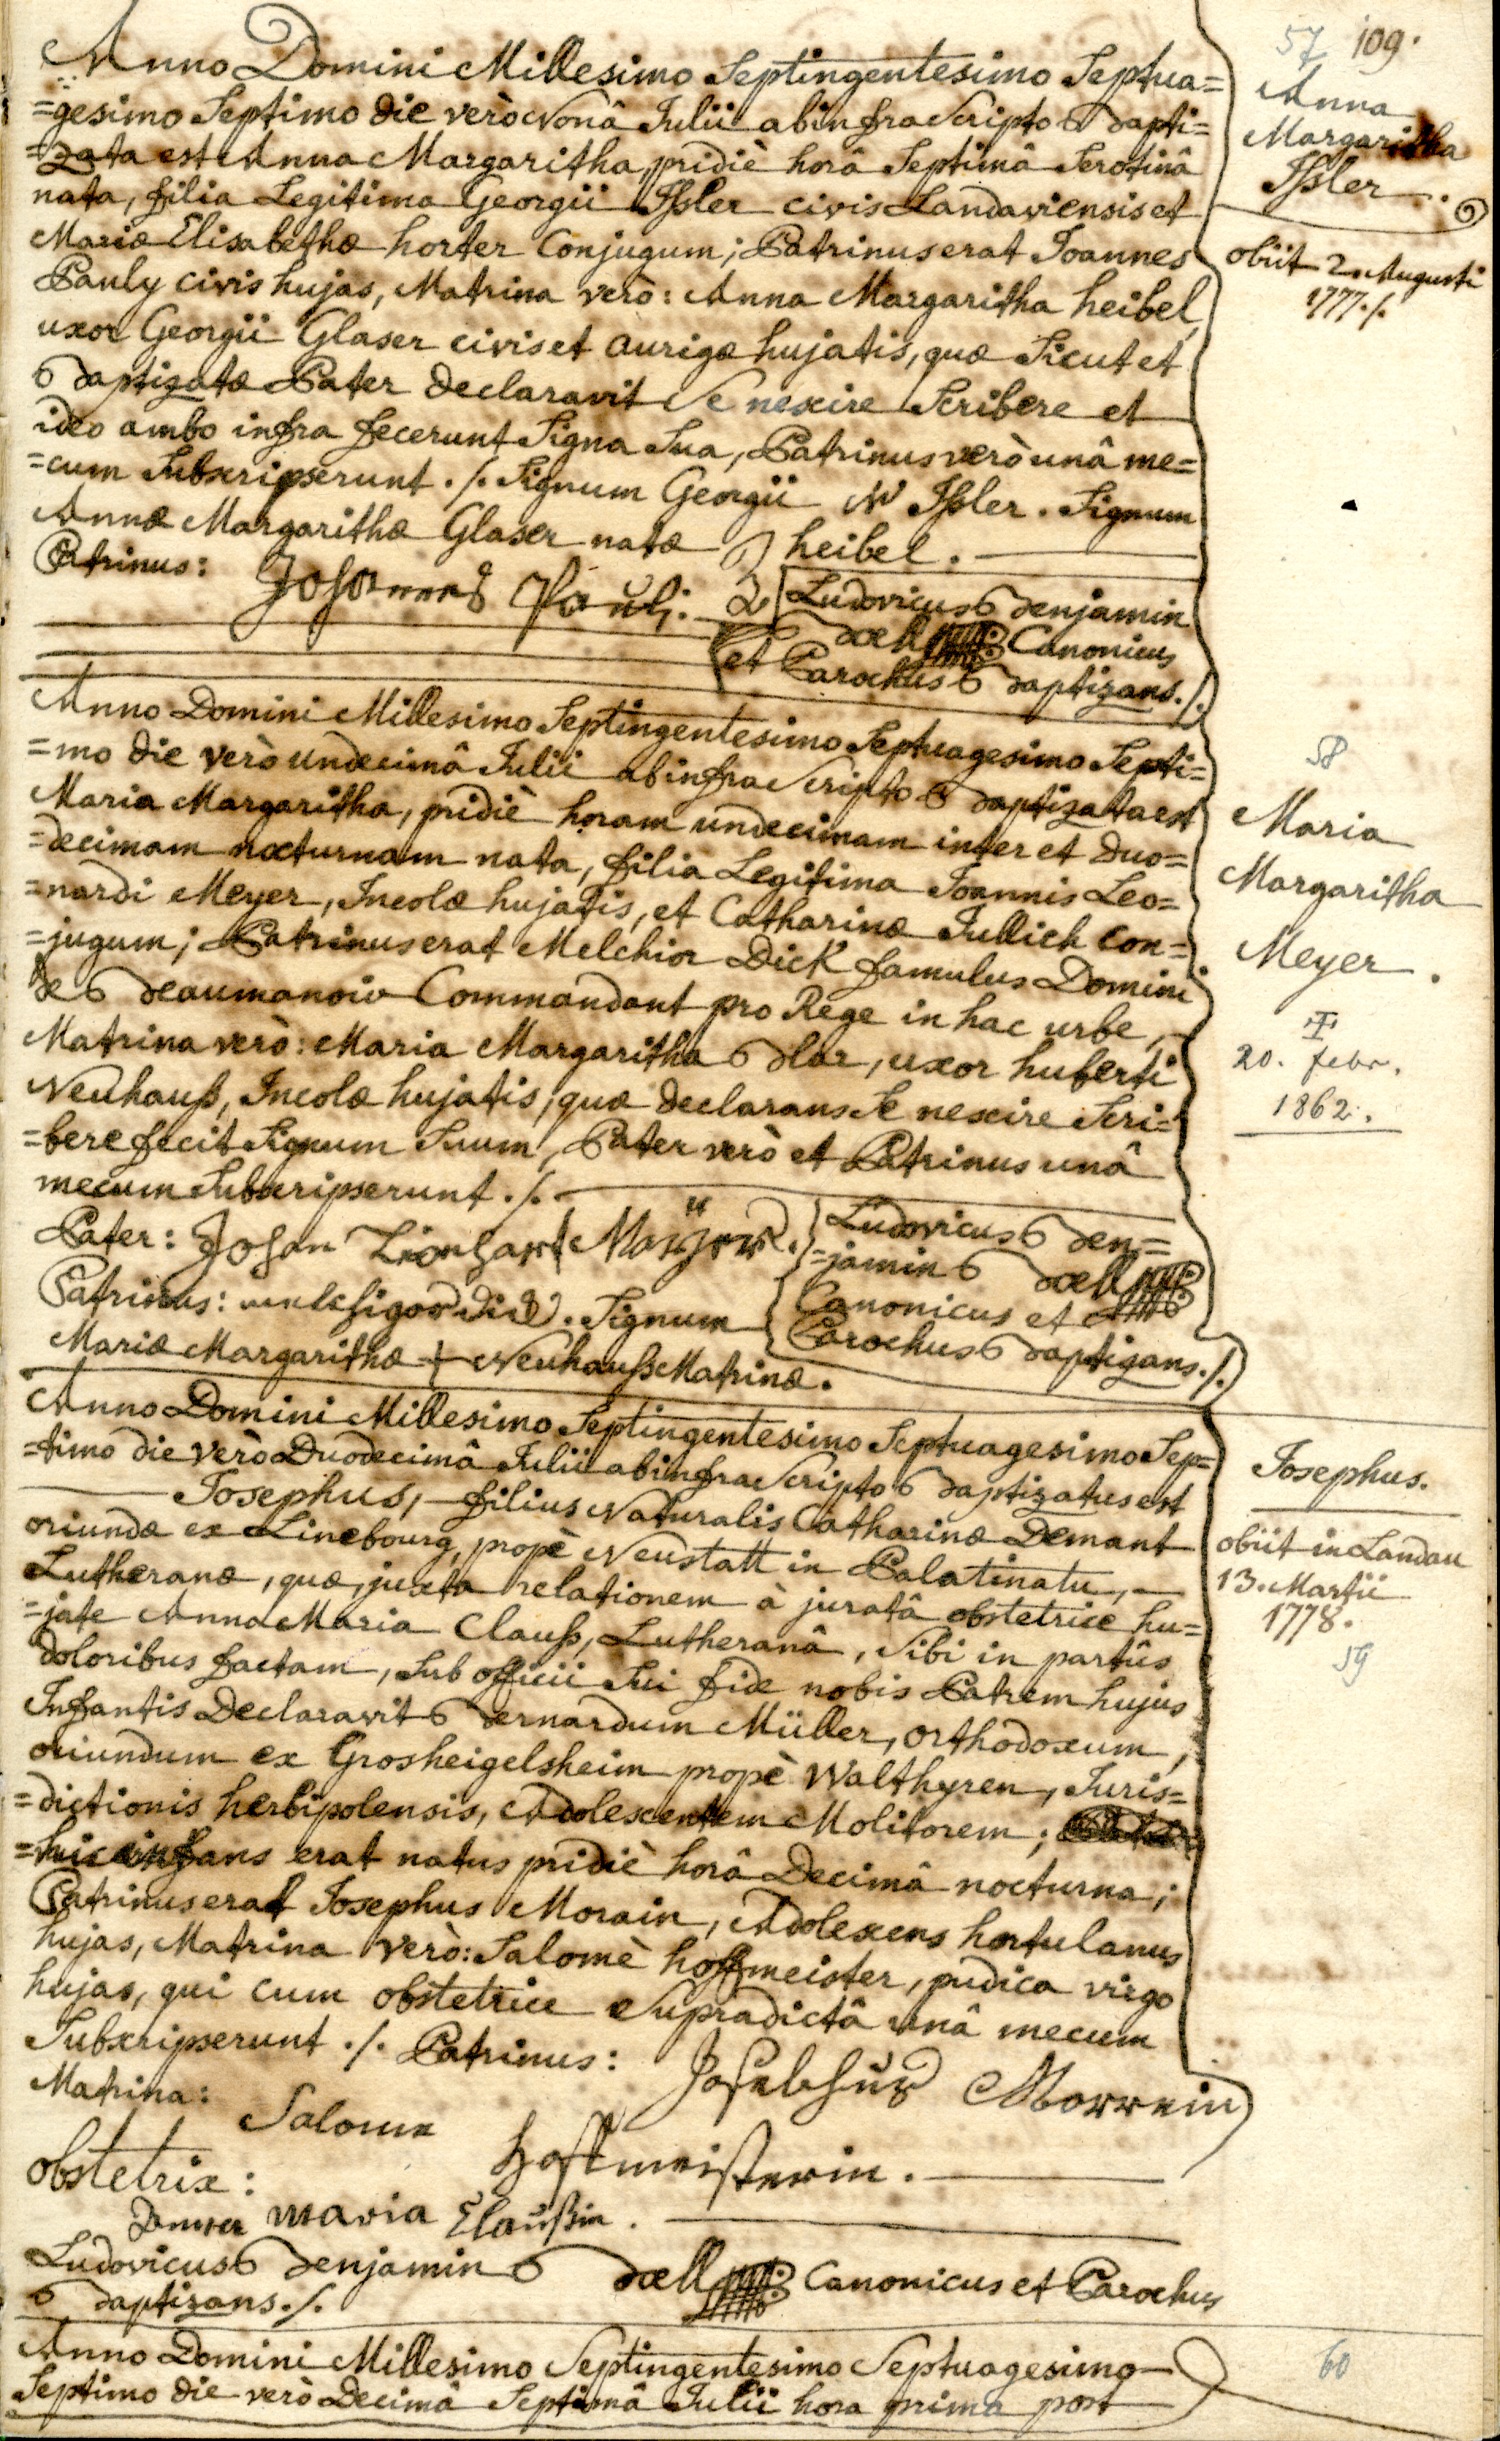 57 109.
Anno Domini Millesimo Septingentesimo Septua=
=gesimo Septimo die verò Nonâ Julii ab infra Scripto Bapti=
=zata est Anna Margaritha, pridiè horâ Septimâ Serotinâ
nata, filia Legitima Georgii Issler civis Landaviensis et
Mariæ Elisabethæ horter Conjugum; Patrinus erat Joannes
Pauly civis hujas, Matrina verò: Anna Margaritha heibel,
uxor Georgii Glaser civis et aurigæ hujatis, quæ Sicut et
Baptizatæ Pater declaravit Se nescire Scribere et
ideo ambo infra fecerunt Signa Sua, Patrinus verò unâ me=
=cum Subscripserunt ./. Signum Georgii W Issler. Signum
Annæ Margarithæ Glaser natæ heibel.
Patrinus: Johannes Pauly.
Ludovicus Benjamin
Boell Canonicus
et Parochus Baptizans./.
Anna
Margaritha
Issler.
obiit 2. Augusti
1777./.
Anno Domini Millesimo Septingentesimo Septuagesimo Septi=
=mo die verò undecimâ Julii ab infra Scripto Baptizata est
Maria Margaritha, pridiè horam undecimam inter et Duo=
=decimam nocturnam nata, filia Legitima Joannis Leo=
=nardi Meyer, Incolæ hujatis, et Catharinæ Jullich Con=
=jugum; Patrinus erat Melchior Dick famulus Domini
de Beaumanoir Commandant pro Rege in hac urbe,
Matrina verò: Maria Margaritha Blar, uxor huberti
Neuhauß, Incolæ hujatis, quæ declarans Se nescire Scri=
=bere fecit Signum Suum, Pater verò et Patrinus unâ
mecum Subscripserunt ./.
Pater: Johan Lionhart Mayer.
Patrinus: Dick. Signum
Mariæ Margarithæ + Neuhauß Matrinæ.
Ludovicus Ben=
=jamin Boell
Canonicus et
Parochus Baptizans./.
58
Maria
Margaritha
Meyer.
20. febr.
1862.
Anno Domini Millesimo Septingentesimo Septuagesimo Sep=
=timo die verò Duodecimâ Julii ab infra Scripto Baptizatus est
Josephus, filius Naturalis Catharinæ Demant
oriundæ ex Linebourg, propè Neustatt in Palatinatu,
Lutheranæ, quæ, juxta relationem à juratâ obstetrice hu=
=jate Anna Maria Clauß, Lutheranâ, Sibi in partûs
doloribus factam, Sub officii Sui fide nobis Patrem hujus
Infantis Declaravit Bernardum Müller, orthodoxum,
oriundum ex Grosheigelsheim propè Walthyren, Juris=
=dictionis herbipolensis, Adolescentem Molitorem;
=hic infans erat natus pridiè horâ Decimâ nocturna;
Patrinus erat Josephus Morain, Adolescens hortulanus
hujas, Matrina verò: Salomè hoffmeister, pudica virgo
hujas, qui cum obstetrice Supradictâ unâ mecum
Subscripserunt ./. Patrinus: Josebhus Morrein
Matrina: Salome Hoffmeisterin.
obstetrix: Anna Maria Claußin.
Ludovicus Benjamin Boell Canonicus et Parochus
Baptizans./.
Josephus.
obiit in Landau
13. Martii
1778.
59
Anno Domini Millesimo Septingentesimo Septuagesimo
Septimo die verò Decimâ Septimâ Julii hora prima post
60